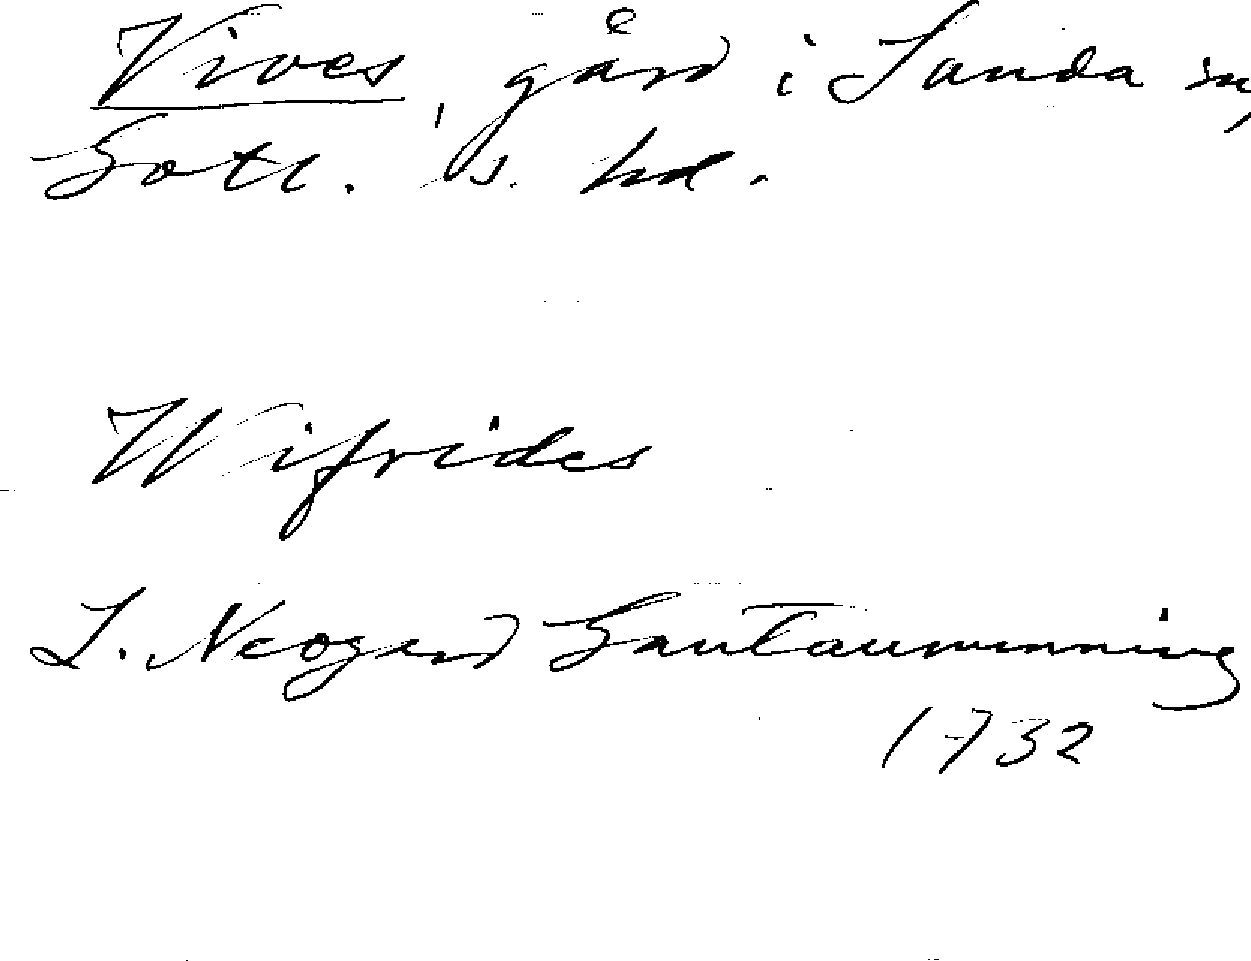 Vives, gård i Sanda sn,
Gotl. s. hd.
Wifrides
L. Neogard Gautauminning
1732